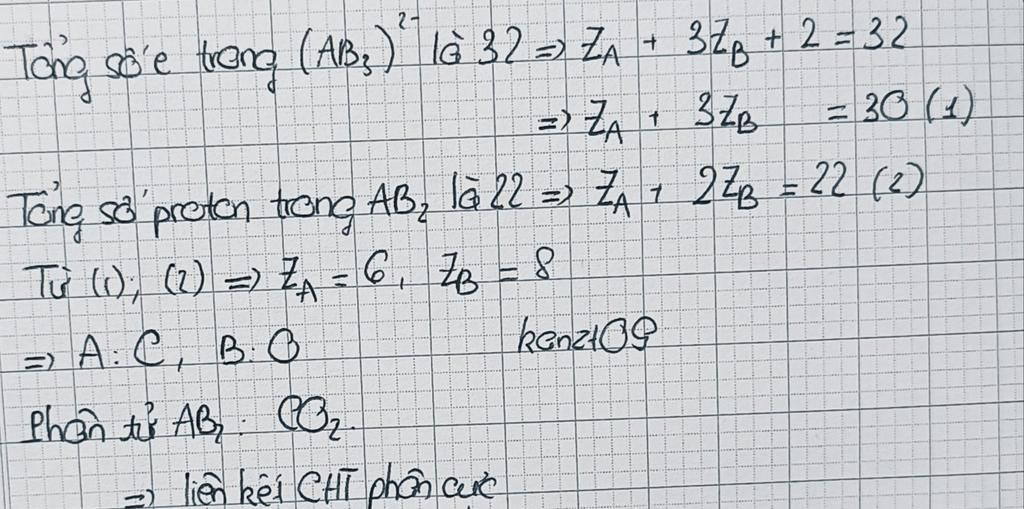 Tổng số e trong (AB₃)²⁻ là 32 => Z_A + 3Z_B + 2 = 32
=> Z_A + 3Z_B = 30 (1)
Tổng số proton trong AB₂ là 22 => Z_A + 2Z_B = 22 (2)
Từ (1); (2) => Z_A = 6, Z_B = 8
=> A: C, B: O
kenz109
Phân tử AB₂: CO₂.
=> liên kết CHT phân cực